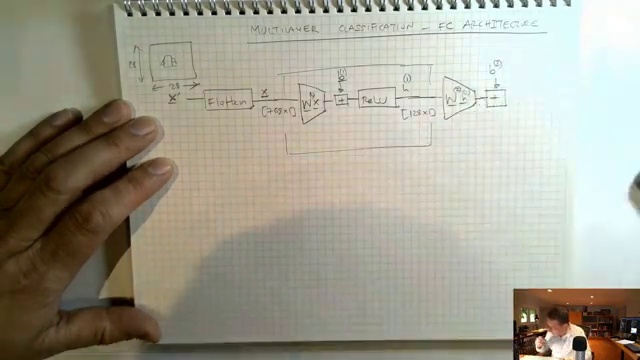 MULTILAYER CLASSIFICATION - FC ARCHITECTURE
28
28
x' Flatten x [768x1] W⁽¹⁾x + b⁽¹⁾ ReLU h⁽¹⁾ [128x1] + b⁽²⁾